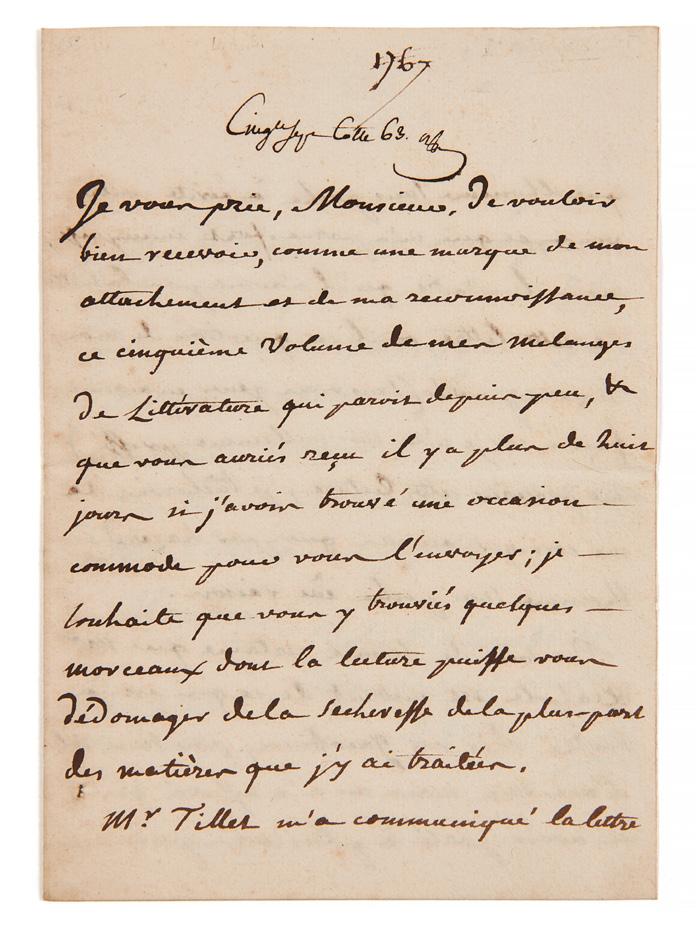 1767
Cotte 63.
Je vous prie, Monsieur, de vouloir
bien recevoir, comme une marque de mon
attachement et de ma reconnoissance,
ce cinquième Volume de mes melanges
de Littérature qui paroit depuis peu, &
que vous auriés reçu il y a plus de huit
jours si j'avois trouvé une occasion
commode pour vous l'envoyer; je
souhaite que vous y trouviés quelques
morceaux dont la lecture puisse vous
dédomager de la secheresse de la plus-part
des matières que j'y ai traitées.
Mr Tillet m'a communiqué la lettre